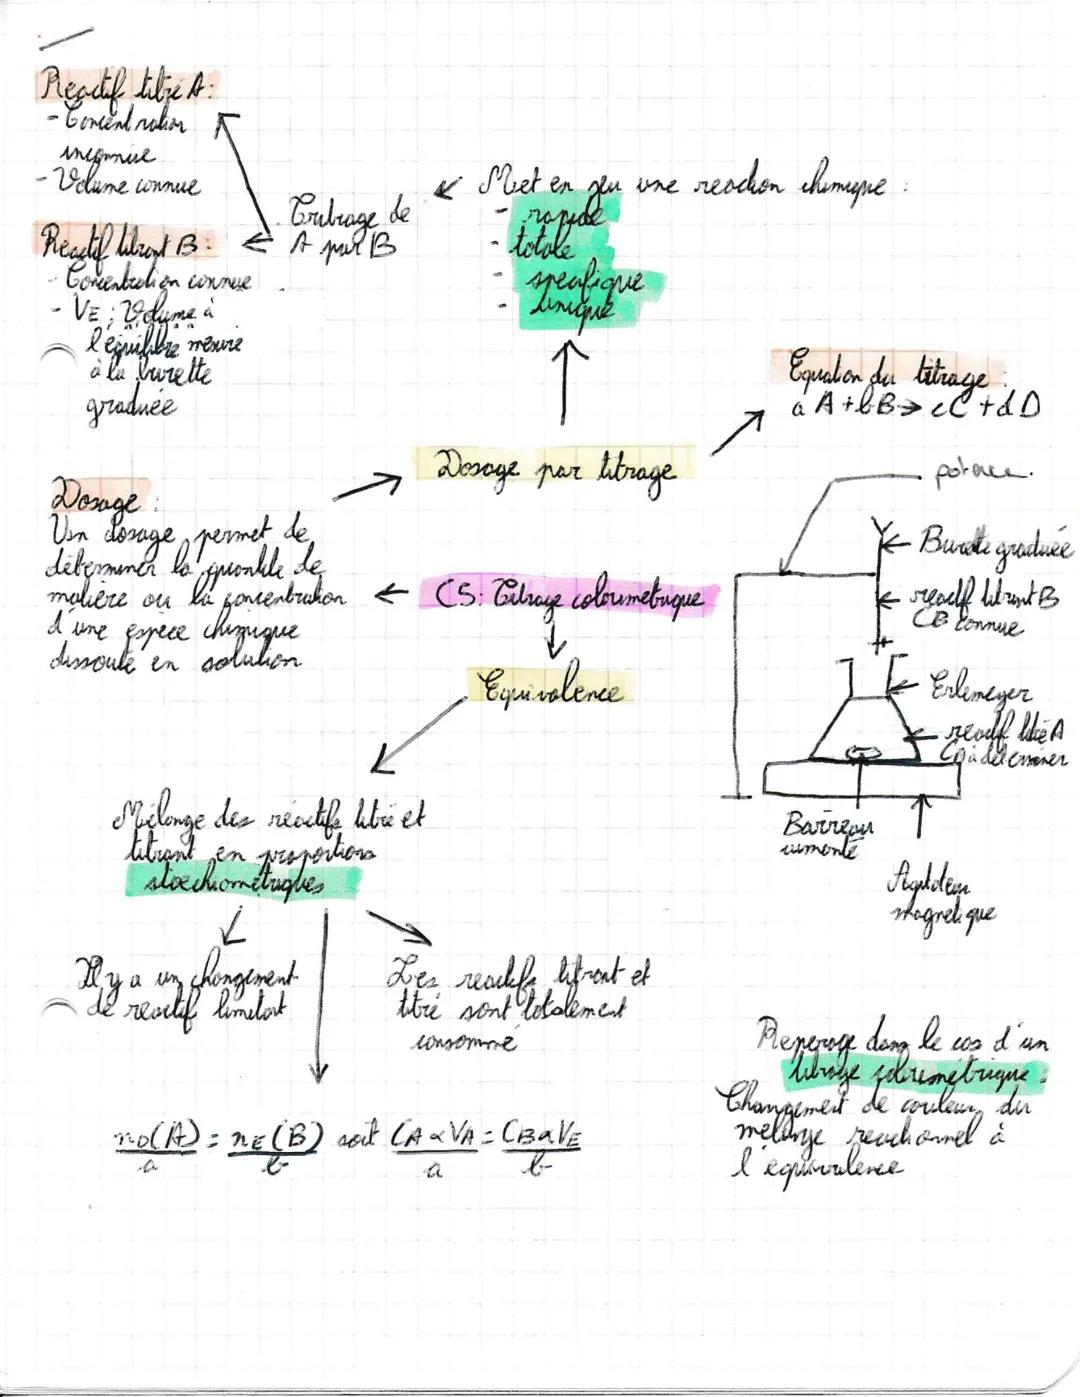 Reactif titré A:
- Concentration
inconnue
- Volume connue
Reactif titrant B:
- Concentration connue
- VE : Volume à
l'équilibre mesure
à la burette
graduée
Titrage de
A par B
Met en jeu une reaction chimique :
- rapide
- totale
- specifique
- unique
Equation du titrage :
a A + b B → c C + d D
Dosage par titrage
Dosage :
Un dosage permet de
déterminer la quantité de
matière ou la concentration
d'une espèce chimique
dissoute en solution
C5: Titrage colorimetrique
Equivalence
potence.
Burette graduée
reactif titrant B
CB connue
Erlemeyer
reactif titré A
CA à déterminer
Barreau
aimanté
Agitateur
magnetique
Mélange des réactifs titré et
titrant en proportions
stoechiométriques
Il y a un changement
de reactif limitant
Les reactifs titrant et
titré sont totalement
consommé
n0(A)/a = nE(B)/b soit CA x VA/a = CB x VE/b
Reperage dans le cas d'un
titrage colorimétrique :
Changement de couleur du
mélange reactionnel à
l'équivalence